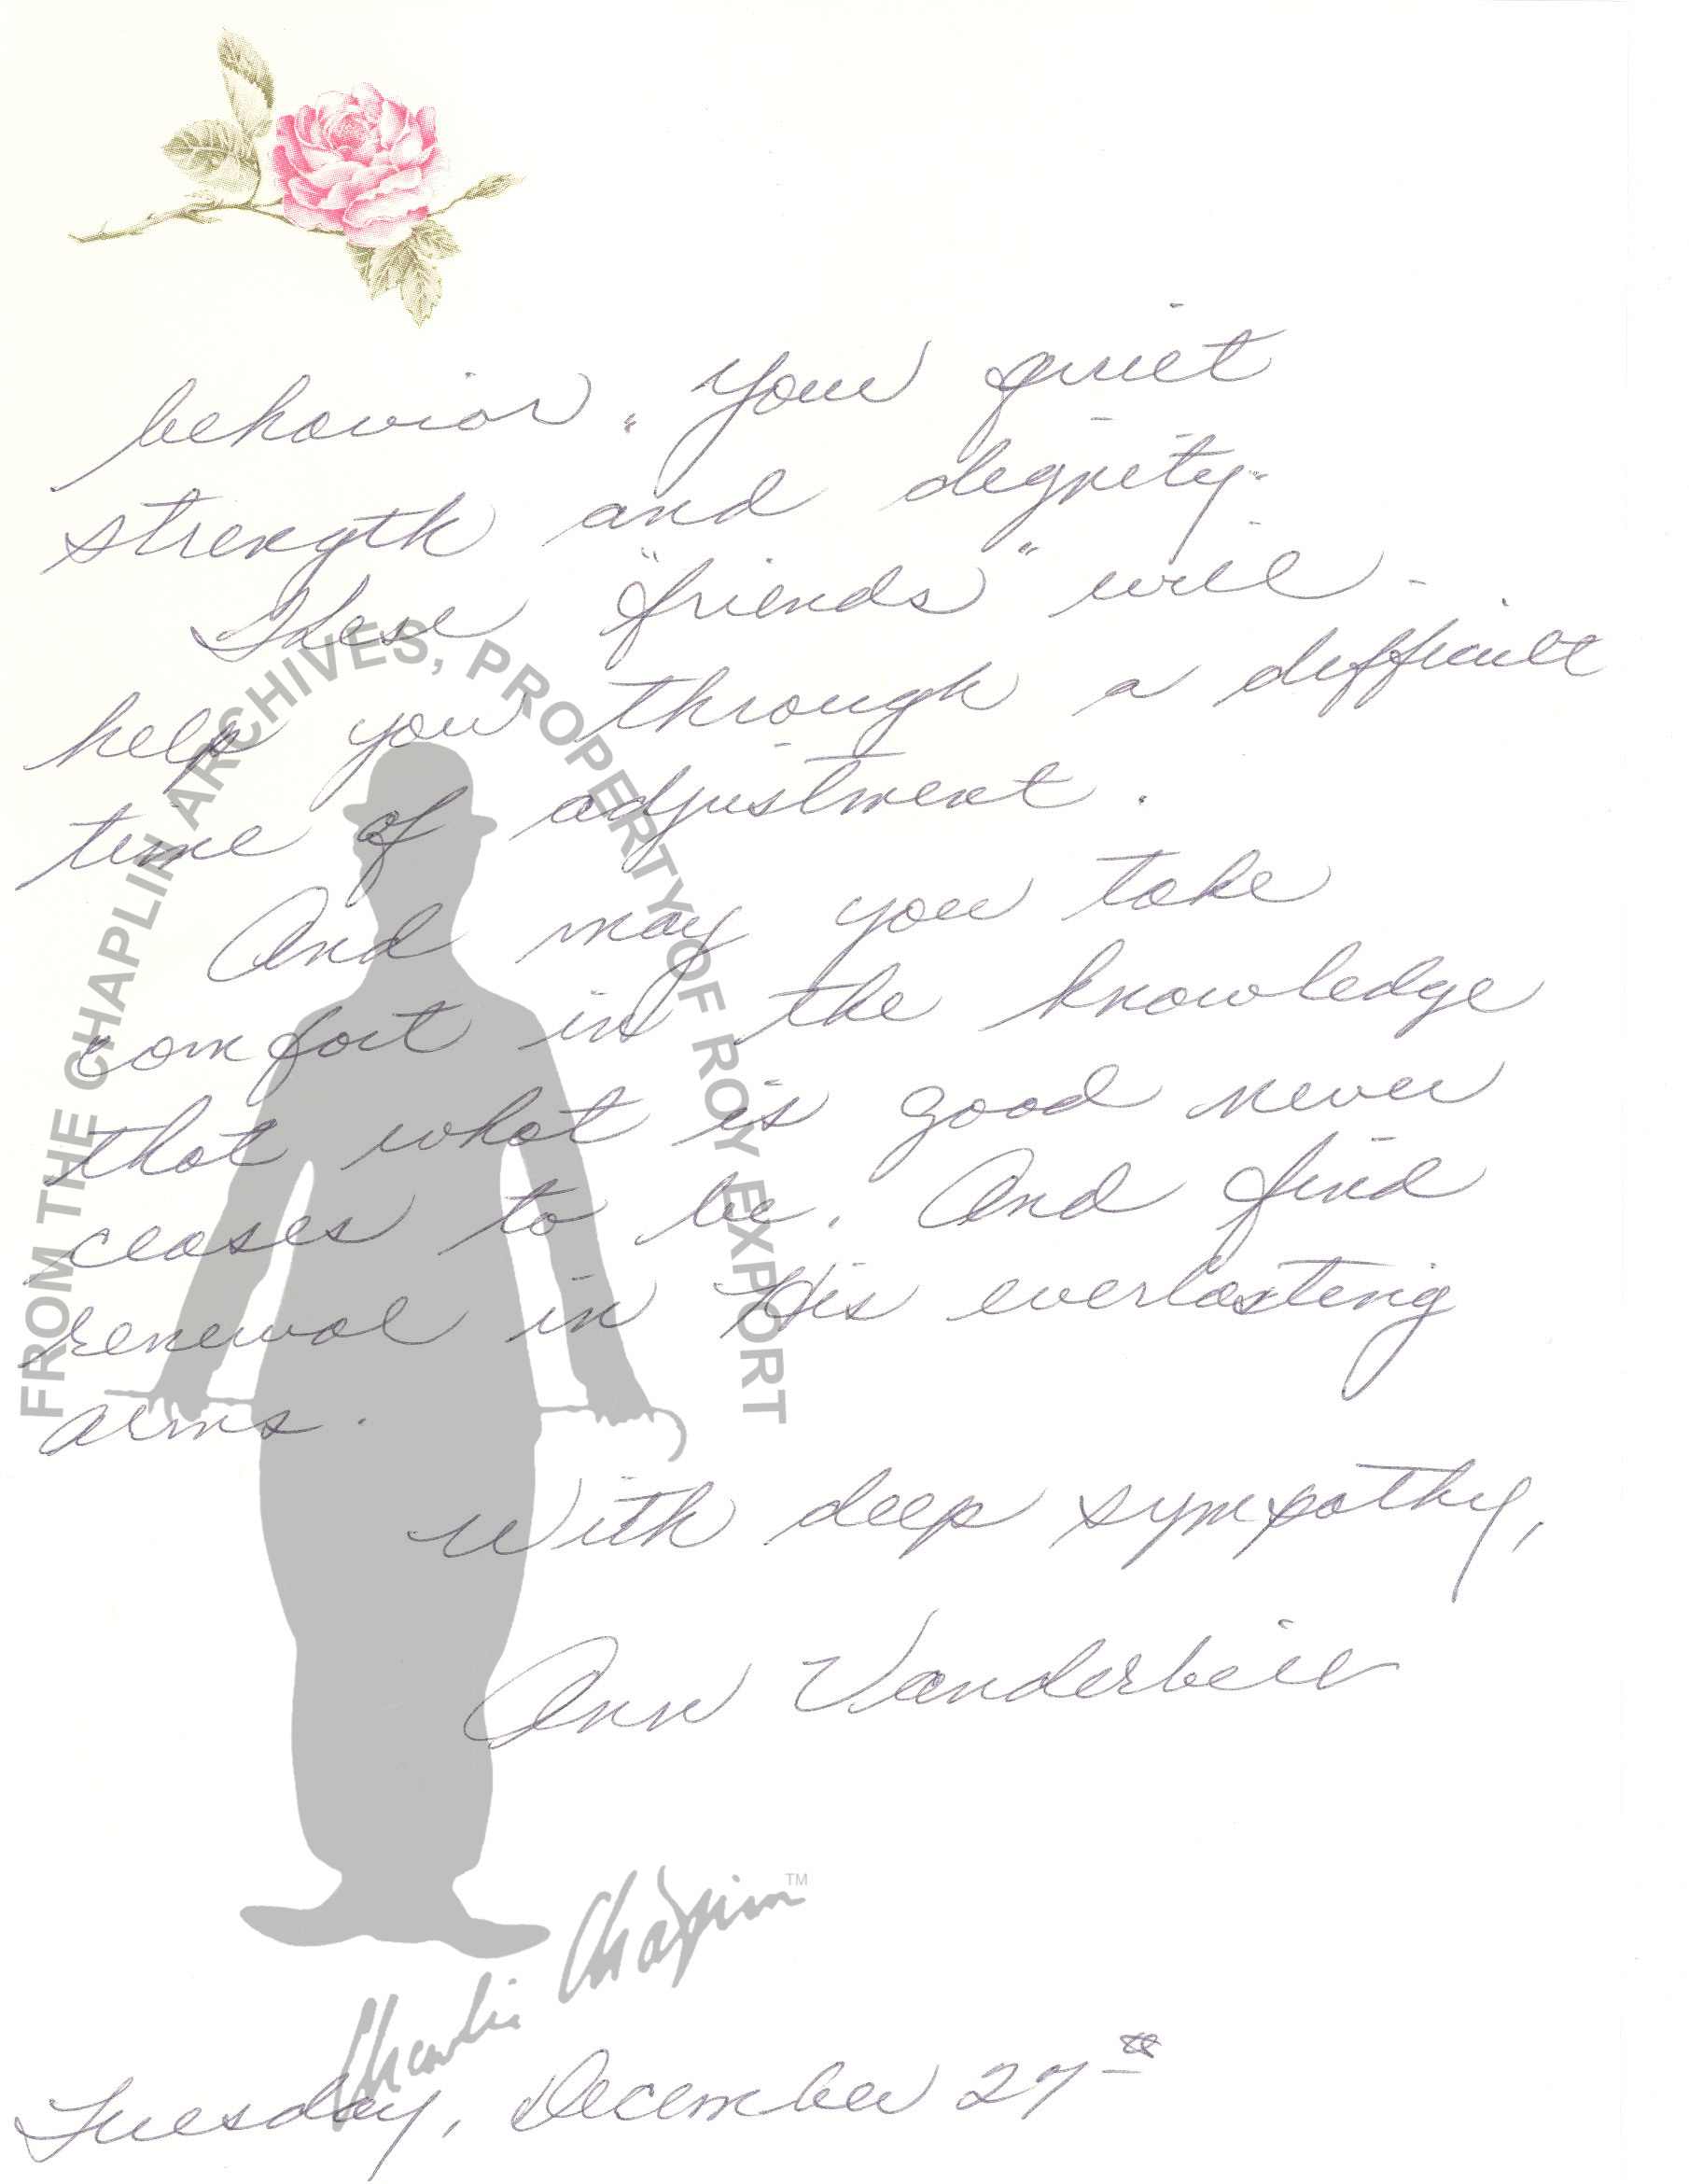 behavior. Your quiet
strength and dignity.
These "friends" will
help you through a difficult
time of adjustment.
And may you take
comfort in the knowledge
that what is good never
ceases to be. And find
renewal in His everlasting
arms.
With deep sympathy,
Ann Vanderbilt
Tuesday, December 27th
FROM THE CHAPLIN ARCHIVES, PROPERTY OF ROY EXPORT
Charlie Chaplin TM